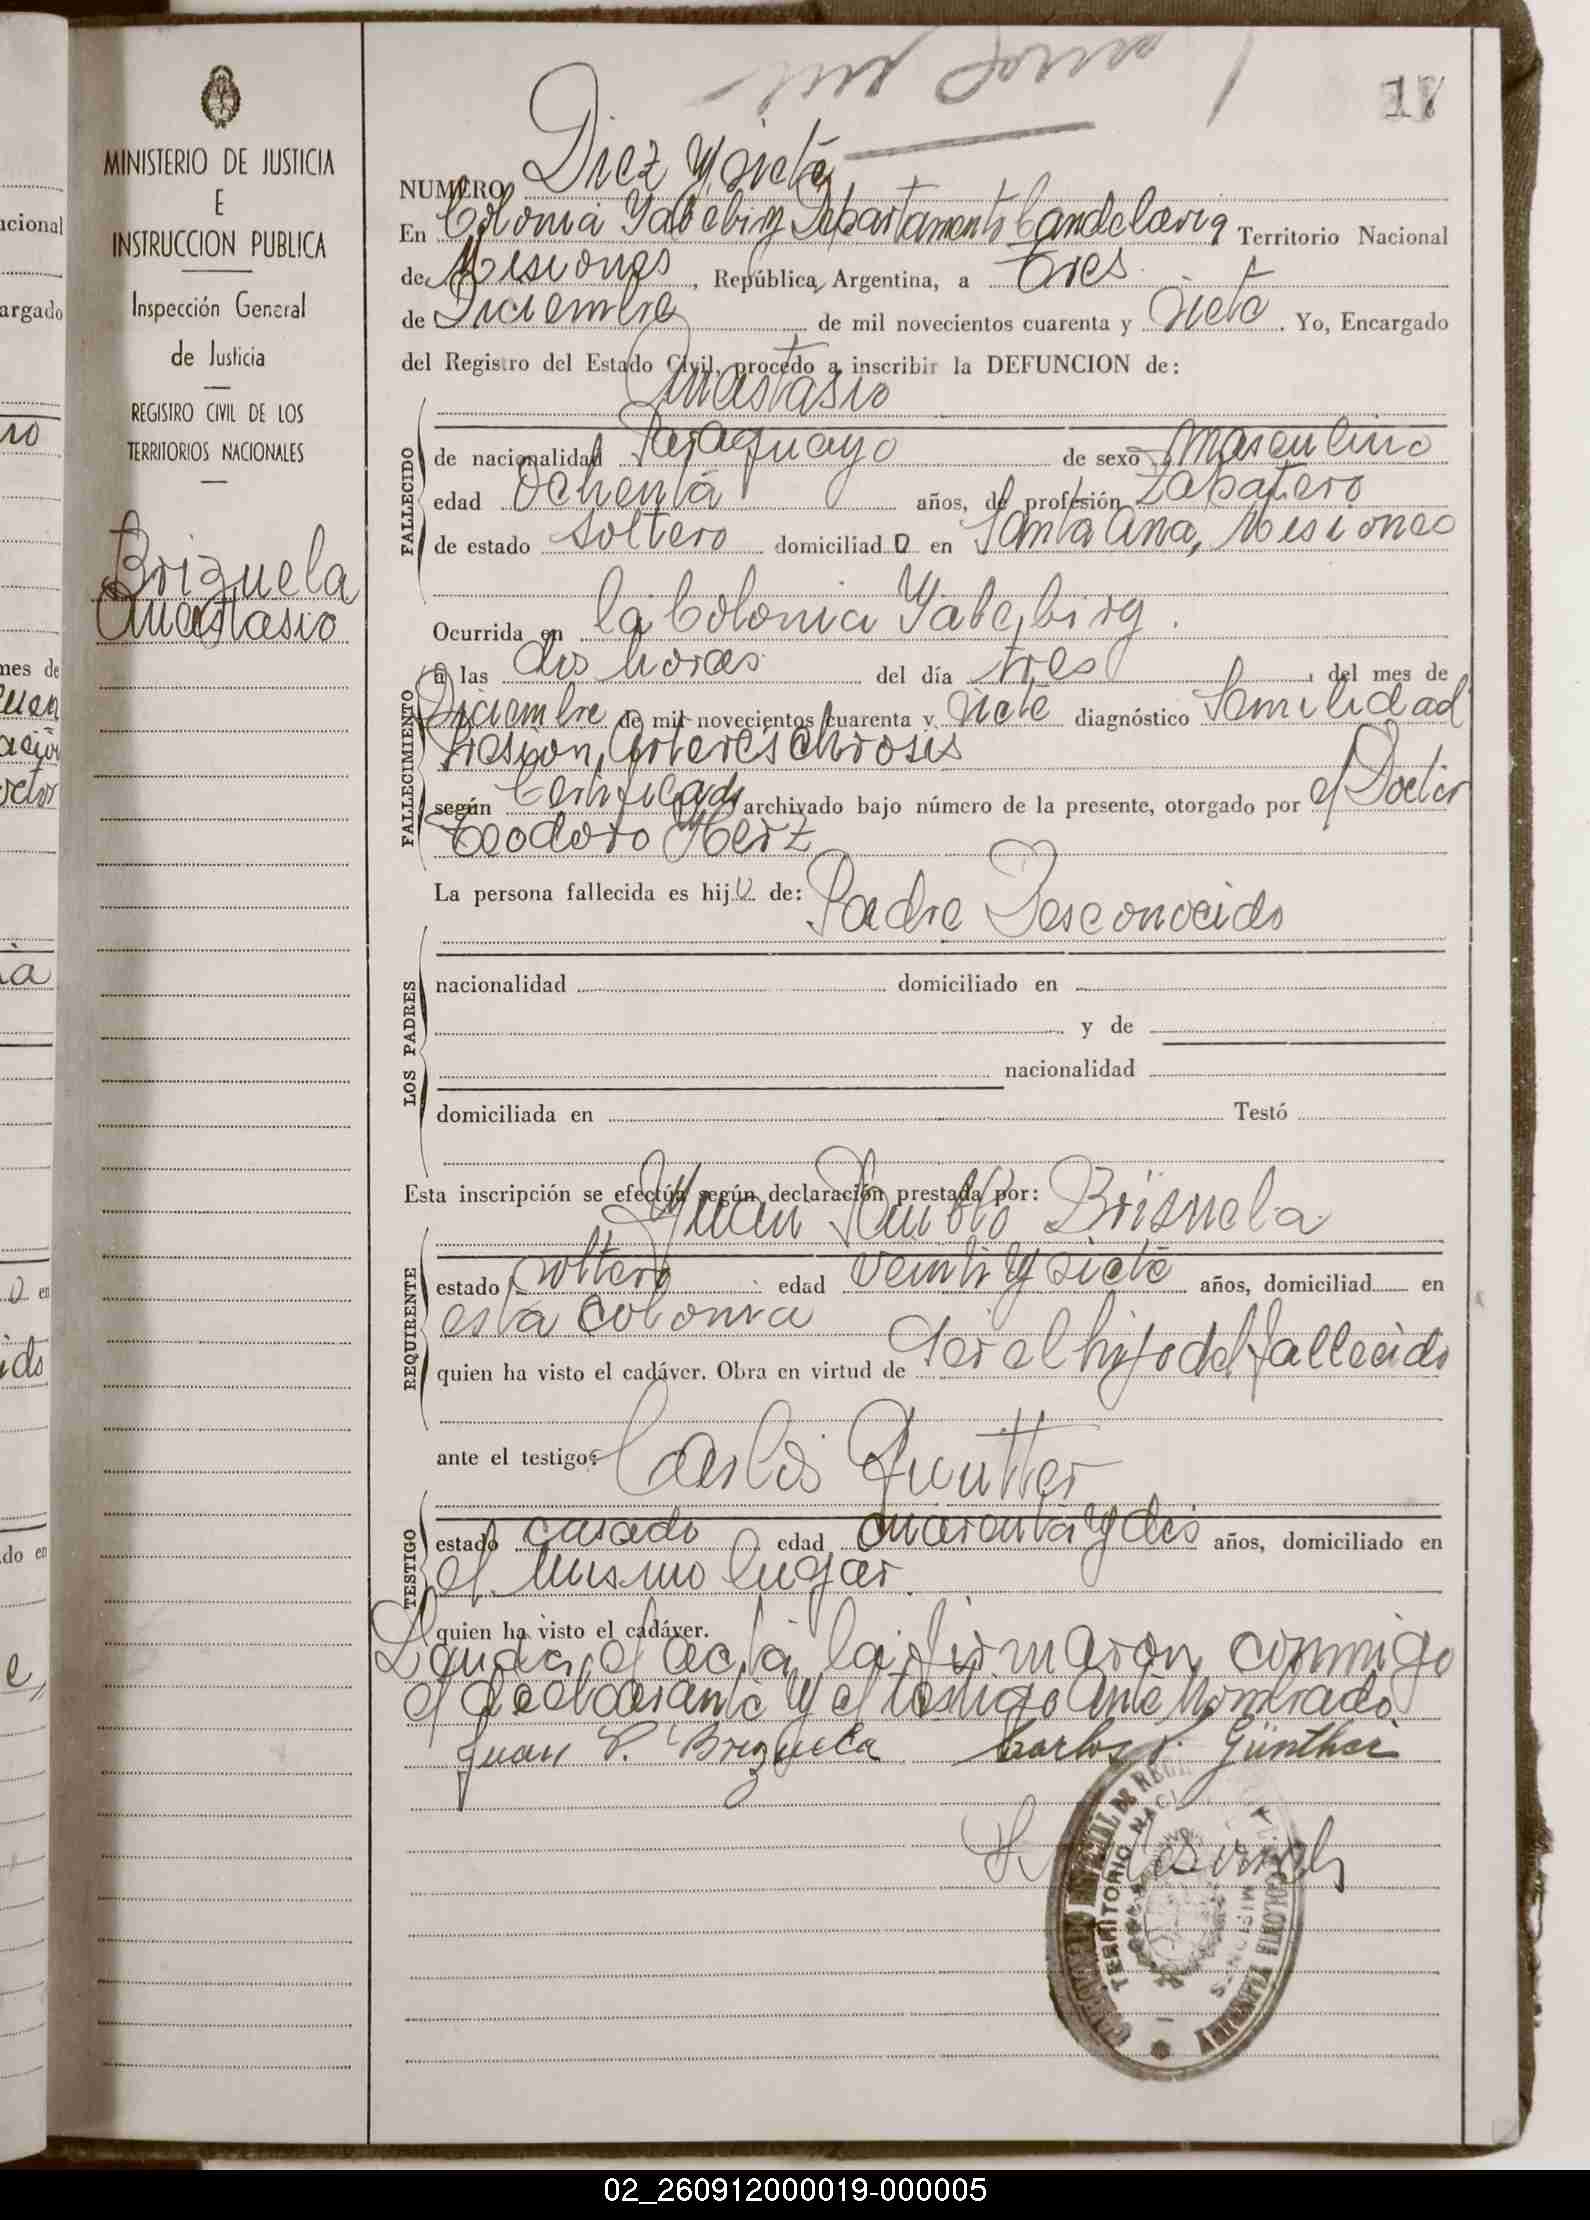 17
MINISTERIO DE JUSTICIA
E
INSTRUCCION PUBLICA
Inspección General
de Justicia
REGISTRO CIVIL DE LOS
TERRITORIOS NACIONALES
Brizuela
Anastasio
NUMERO Diez y siete
En Colonia Yabebiry Departamento Candelaria Territorio Nacional
de Misiones, República Argentina, a tres
de Diciembre de mil novecientos cuarenta y siete. Yo, Encargado
del Registro del Estado Civil, procedo a inscribir la DEFUNCION de:
Anastasio
FALLECIDO
de nacionalidad Paraguayo de sexo masculino
edad ochenta años, de profesión zapatero
de estado soltero domiciliado en Santa Ana, Misiones
Ocurrida en la Colonia Yabebiry.
FALLECIMIENTO
a las dos horas del día tres, del mes de
Diciembre de mil novecientos cuarenta y siete diagnóstico Senilidad
presion, Arteresclirosis
según Certificado archivado bajo número de la presente, otorgado por el Doctor
Teodoro Herz
La persona fallecida es hijo de: Padre Desconocido
LOS PADRES
nacionalidad domiciliado en
y de
nacionalidad
domiciliada en Testó
Esta inscripción se efectúa según declaración prestada por:
Juan Pablo Brisuela
REQUIRENTE
estado soltero edad veinti y siete años, domiciliad en
esta colonia
quien ha visto el cadáver. Obra en virtud de ser el hijo del fallecido
ante el testigo: Carlos Guntter
TESTIGO
estado casado edad cuarenta y dos años, domiciliado en
el mismo lugar.
quien ha visto el cadáver.
el acta, la firmaron conmigo
el declarante y el testigo ante nombrado
Juan P. Brizuela Carlos Günther
TERRITORIO
MISIONES
02_260912000019-000005